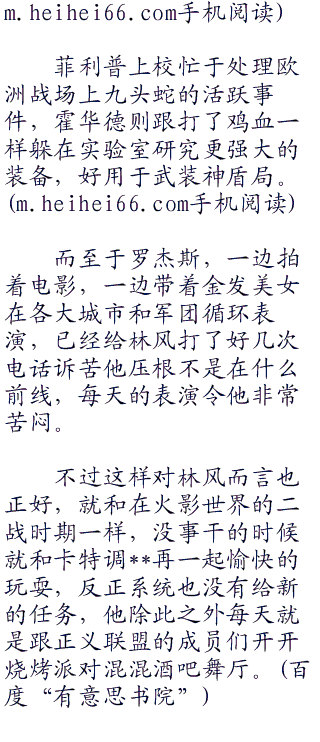 m.heihei66.com手机阅读)
菲利普上校忙于处理欧
洲战场上九头蛇的活跃事
件，霍华德则跟打了鸡血一
样躲在实验室研究更强大的
装备，好用于武装神盾局。
(m.heihei66.com手机阅读)
而至于罗杰斯，一边拍
着电影，一边带着金发美女
在各大城市和军团循环表
演，已经给林风打了好几次
电话诉苦他压根不是在什么
前线，每天的表演令他非常
苦闷。
不过这样对林风而言也
正好，就和在火影世界的二
战时期一样，没事干的时候
就和卡特调**再一起愉快的
玩耍，反正系统也没有给新
的任务，他除此之外每天就
是跟正义联盟的成员们开开
烧烤派对混混酒吧舞厅。(百
度“有意思书院”)